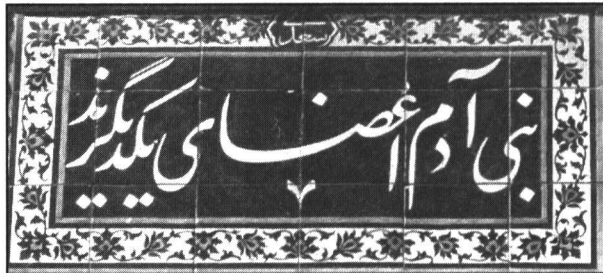 بنی آدم اعضای یکدیگرند